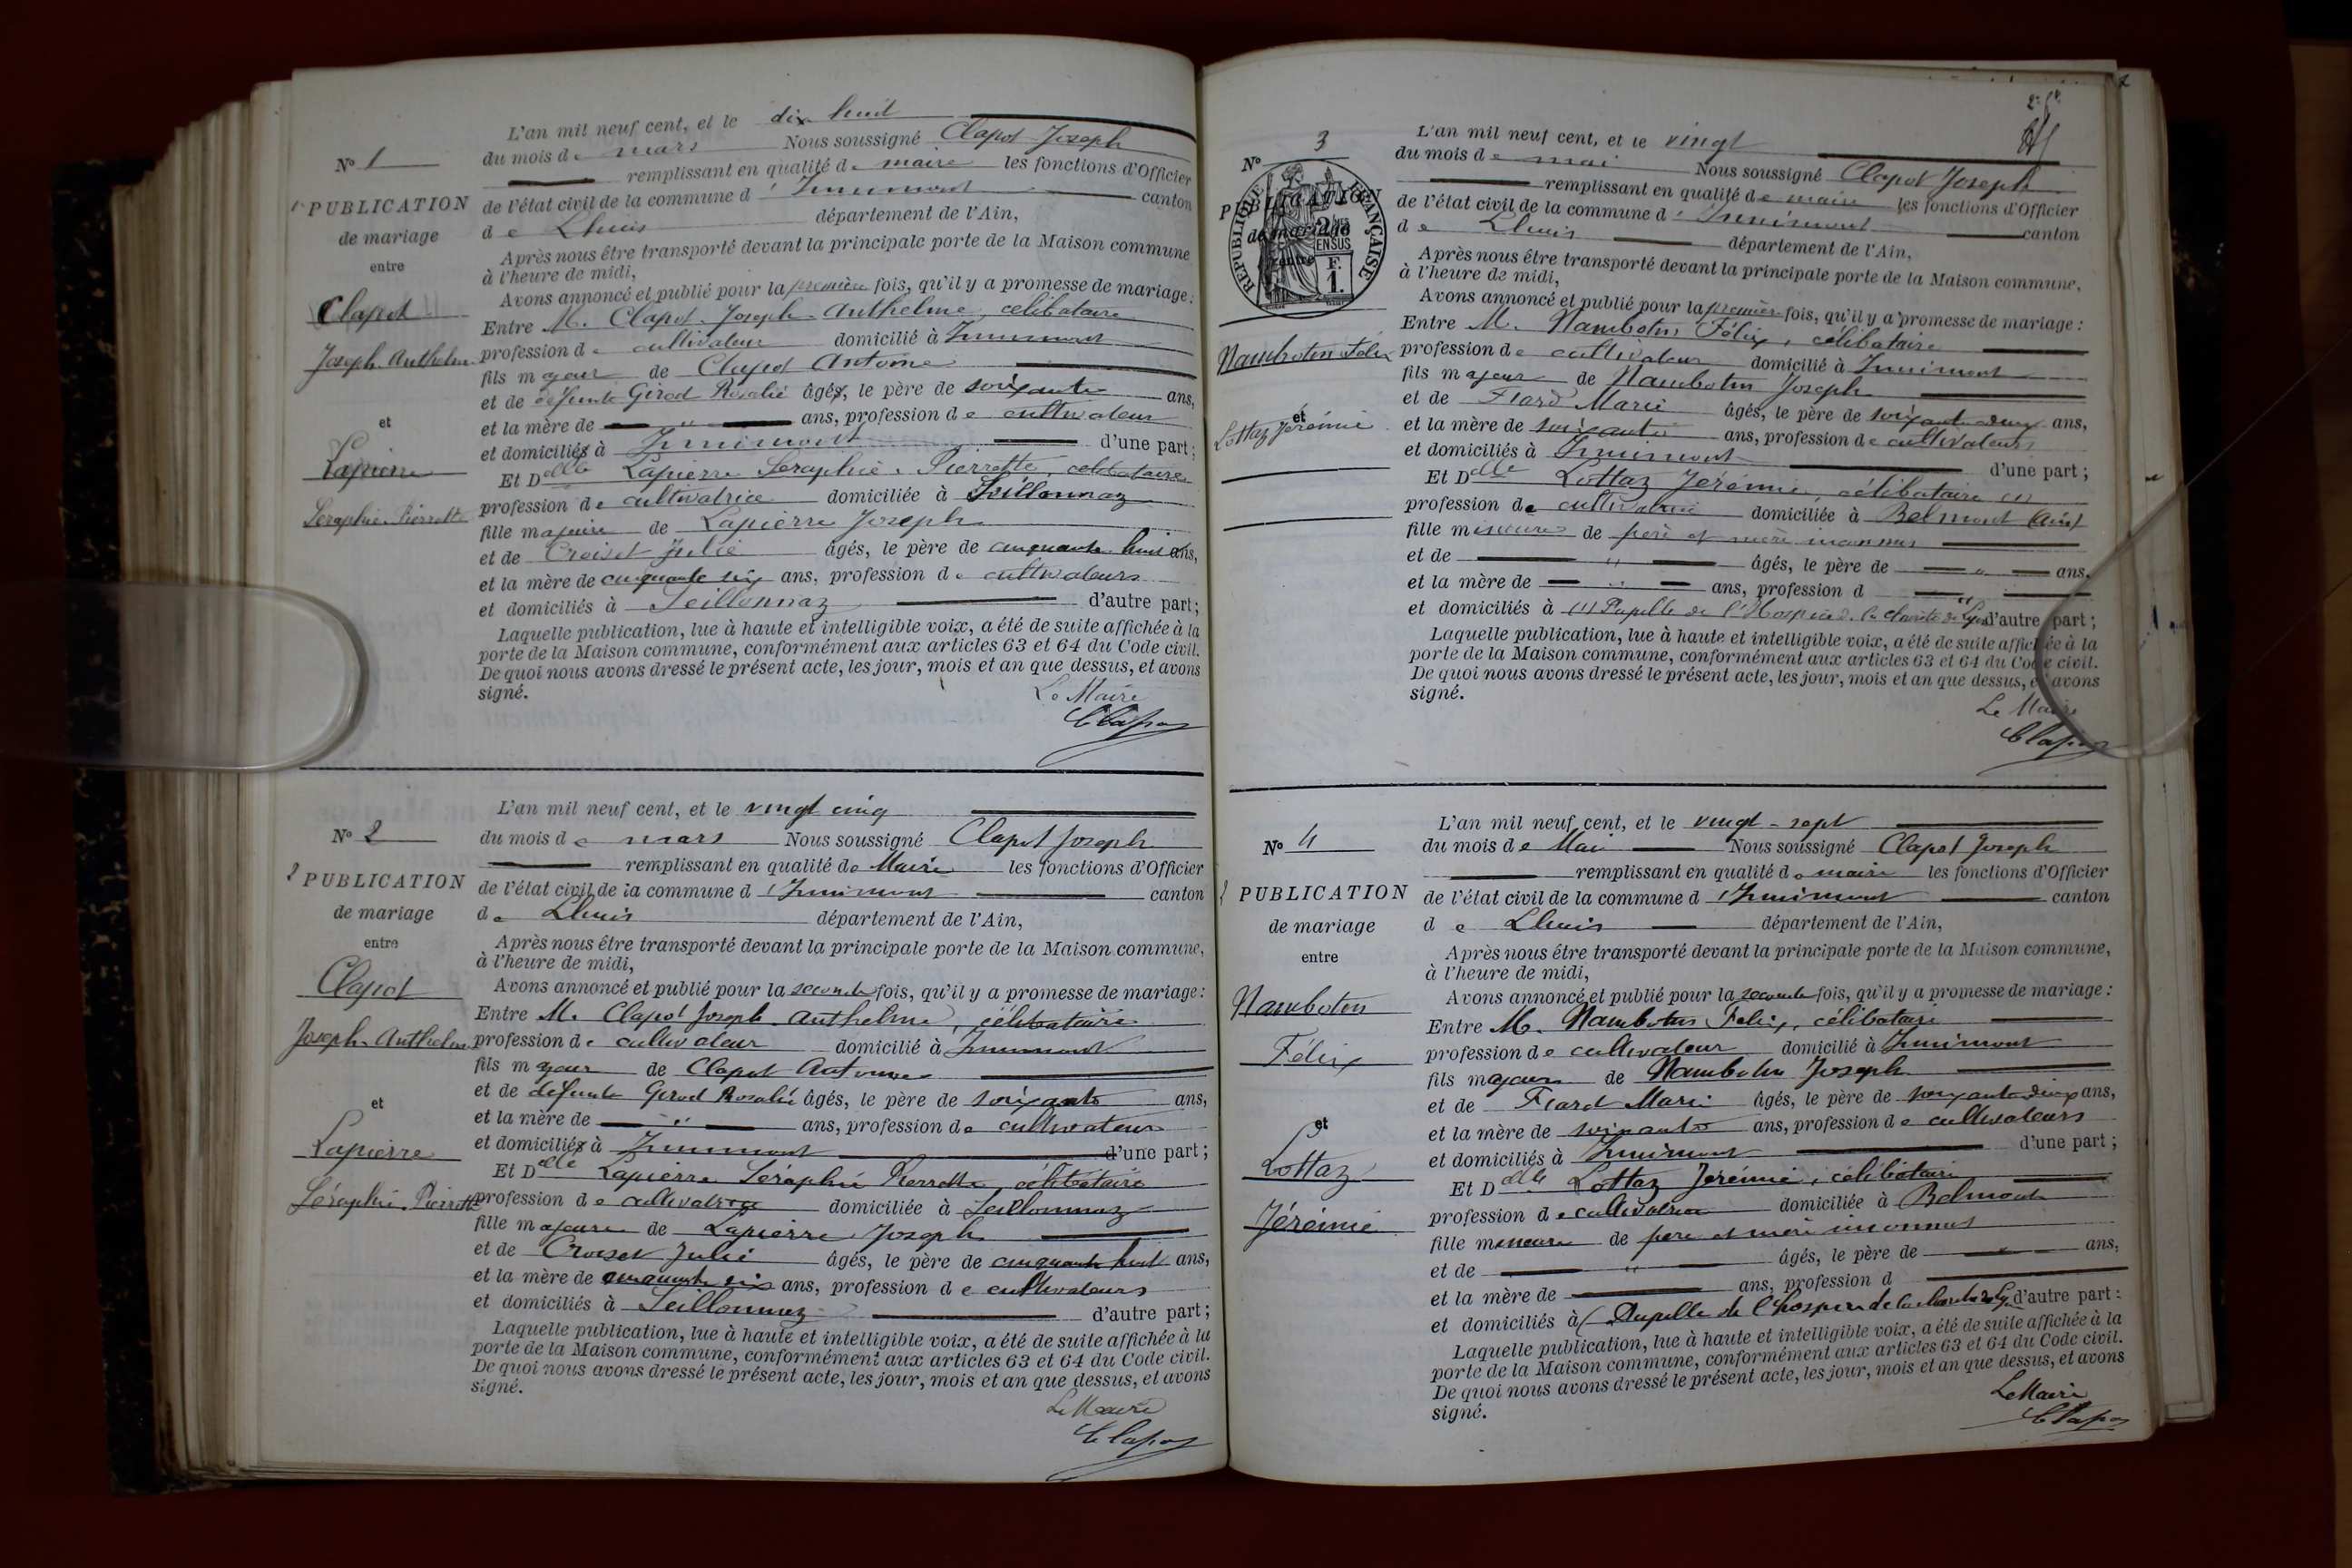 L'an mil neuf cent, et le dix huit
N° 1
du mois de mars Nous soussigné Clapot Joseph
remplissant en qualité de maire les fonctions d'Officier
1e PUBLICATION
de l'état civil de la commune d'Innimont canton
de Lhuis département de l'Ain,
de mariage
entre
Après nous être transporté devant la principale porte de la Maison commune
à l'heure de midi,
Avons annoncé et publié pour la première fois, qu'il y a promesse de mariage:
Clapot
Entre M. Clapot Joseph-Anthelme, célibataire
Joseph-Anthelme
profession de cultivateur domicilié à Innimont
fils majeur de Clapot Antoine
et de défunte Girod Rosalie âgés, le père de soixante ans,
et la mère de " ans, profession de cultivateur
et
et domiciliés à Innimont d'une part;
Lapierre
Et Delle Lapierre Seraphie-Pierrette, célibataire
profession de cultivatrice domiciliée à Seillonnaz
Seraphie-Pierrette
fille majeure de Lapierre Joseph
et de Croiset Julie âgés, le père de cinquante huit ans,
et la mère de cinquante six ans, profession de cultivateurs
et domiciliés à Seillonnaz d'autre part;
Laquelle publication, lue à haute et intelligible voix, a été de suite affichée à la
porte de la Maison commune, conformément aux articles 63 et 64 du Code civil.
De quoi nous avons dressé le présent acte, les jour, mois et an que dessus, et avons
signé.
Le Maire
Clapot
L'an mil neuf cent, et le vingt cinq
N° 2
du mois de mars Nous soussigné Clapot Joseph
remplissant en qualité de Maire les fonctions d'Officier
2 PUBLICATION
de l'état civil de la commune d'Innimont canton
de mariage
de Lhuis département de l'Ain,
entre
Après nous être transporté devant la principale porte de la Maison commune,
à l'heure de midi,
Clapot
Avons annoncé et publié pour la seconde fois, qu'il y a promesse de mariage:
Entre M. Clapot Joseph-Anthelme, célibataire
Joseph-Anthelme
profession de cultivateur domicilié à Innimont
fils majeur de Clapot Antoine
et de défunte Girod Rosalie âgés, le père de soixante ans,
et
et la mère de " ans, profession de cultivateur
et domiciliés à Innimont d'une part;
Lapierre
Et Delle Lapierre Séraphie Pierrette, célibataire
Séraphie-Pierrette
profession de cultivatrice domiciliée à Seillonnaz
fille majeure de Lapierre Joseph
et de Croiset Julie âgés, le père de cinquante huit ans,
et la mère de cinquante six ans, profession de cultivateurs
et domiciliés à Seillonnaz d'autre part;
Laquelle publication, lue à haute et intelligible voix, a été de suite affichée à la
porte de la Maison commune, conformément aux articles 63 et 64 du Code civil.
De quoi nous avons dressé le présent acte, les jour, mois et an que dessus, et avons
signé.
Le Maire
Clapot
L'an mil neuf cent, et le vingt
N° 3
du mois de mai Nous soussigné Clapot Joseph
remplissant en qualité de maire les fonctions d'Officier
PUBLICATION
de l'état civil de la commune d'Innimont canton
de mariage
de Lhuis département de l'Ain,
entre
REPUBLIQUE FRANÇAISE
EN SUS
F.
1.
Après nous être transporté devant la principale porte de la Maison commune,
à l'heure de midi,
Avons annoncé et publié pour la première fois, qu'il y a promesse de mariage:
Entre M. Nambotin Félix, célibataire
Nambotin Félix
profession de cultivateur domicilié à Innimont
fils majeur de Nambotin Joseph
et de Fiard Marie âgés, le père de soixante deux ans,
et
Lottaz Jérémie
et la mère de soixante ans, profession de cultivateurs
et domiciliés à Innimont d'une part;
Et Delle Lottaz Jérémie, célibataire (1)
profession de cultivatrice domiciliée à Belmont (Ain)
fille mineure de père et mère inconnus
et de " âgés, le père de " ans,
et la mère de " ans, profession d "
et domiciliés à (1) Pupille de l'Hospice de la charité de Lyon d'autre part;
Laquelle publication, lue à haute et intelligible voix, a été de suite affichée à la
porte de la Maison commune, conformément aux articles 63 et 64 du Code civil.
De quoi nous avons dressé le présent acte, les jour, mois et an que dessus, et avons
signé.
Le Maire
Clapot
L'an mil neuf cent, et le vingt-sept
N° 4
du mois de Mai Nous soussigné Clapot Joseph
remplissant en qualité de maire les fonctions d'Officier
2 PUBLICATION
de l'état civil de la commune d'Innimont canton
de mariage
de Lhuis département de l'Ain,
entre
Après nous être transporté devant la principale porte de la Maison commune,
à l'heure de midi,
Avons annoncé et publié pour la seconde fois, qu'il y a promesse de mariage:
Nambotin
Entre M. Nambotin Félix, célibataire
Félix
profession de cultivateur domicilié à Innimont
fils majeur de Nambotin Joseph
et de Fiard Marie âgés, le père de soixante deux ans,
et
et la mère de soixante ans, profession de cultivateurs
et domiciliés à Innimont d'une part;
Lottaz
Et Delle Lottaz Jérémie, célibataire
Jérémie
profession de cultivatrice domiciliée à Belmont
fille mineure de père et mère inconnus
et de " âgés, le père de " ans,
et la mère de ans, profession d
et domiciliés à (Pupille de l'hospice de la charité de Lyon d'autre part:
Laquelle publication, lue à haute et intelligible voix, a été de suite affichée à la
porte de la Maison commune, conformément aux articles 63 et 64 du Code civil.
De quoi nous avons dressé le présent acte, les jour, mois et an que dessus, et avons
signé.
Le Maire
Clapot